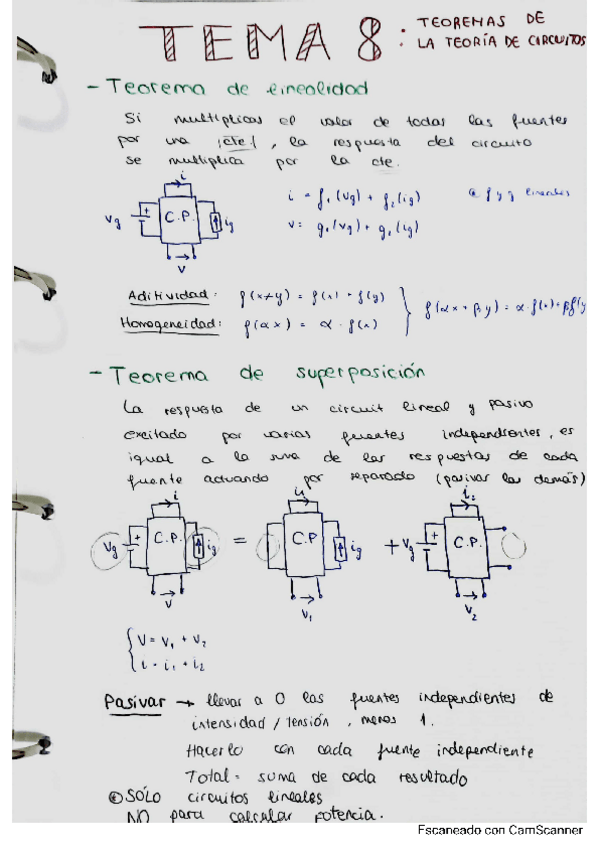 TEMA 8: TEOREMAS DE
LA TEORÍA DE CIRCUITOS
- Teorema de linealidad
Si multiplicas el valor de todas las fuentes
por una ¡cte!, la respuesta del circuito
se multiplica por la cte.
i
Vg + C.P. ig
V
i = f₁(vg) + f₂(ig)
v = g₁(vg) + g₂(ig)
f y g lineales
Aditividad: f(x+y) = f(x) + f(y)
Homogeneidad: f(αx) = α·f(x)
f(αx + βy) = α·f(x)+βf(y
- Teorema de superposición
La respuesta de un circuit lineal y pasivo
excitado por varias fuentes independientes, es
igual a la suma de las respuestas de cada
fuente actuando por separado (pasivar las demás)
i i₁ i₂
Vg + C.P. ig = C.P ig + Vg + C.P.
V V₁ V₂
V = V₁ + V₂
i = i₁ + i₂
Pasivar → llevar a 0 las fuentes independientes de
intensidad / tensión, menos 1.
Hacerlo con cada fuente independiente
Total = suma de cada resultado
SÓLO circuitos lineales
NO para calcular potencia.
Escaneado con CamScanner